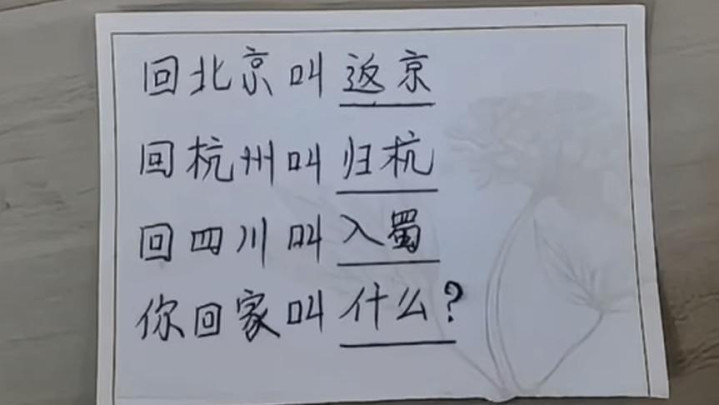 回北京叫返京
回杭州叫归杭
回四川叫入蜀
你回家叫什么?